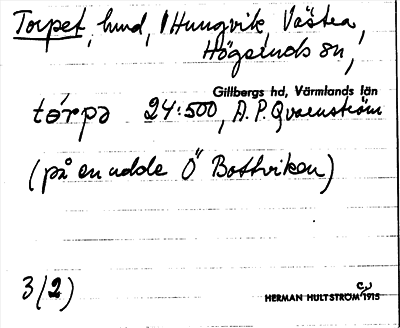 Torpet, hmd, i Hungvik, Västra,
Högsäters sn,
Gillbergs hd, Värmlands län
tórpə 24:500, A. P. Qvarnström
(på en udde Ö Bottviken)
3/2)
HERMAN HULTSTRÖM 1915